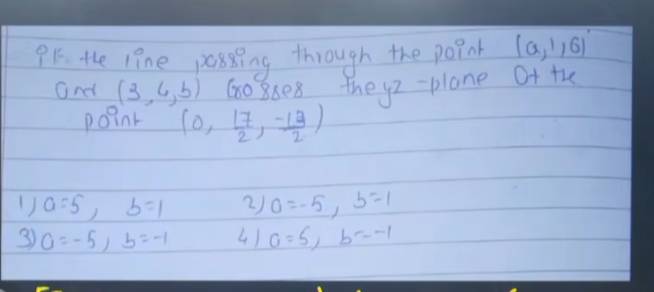 if the line passing through the point (a, 1, 6)
and (3, 4, b) crosses the yz-plane at the
point (0, 17/2, -13/2)
1) a=5, b=1 2) a=-5, b=1
3) a=-5, b=-1 4) a=5, b=-1